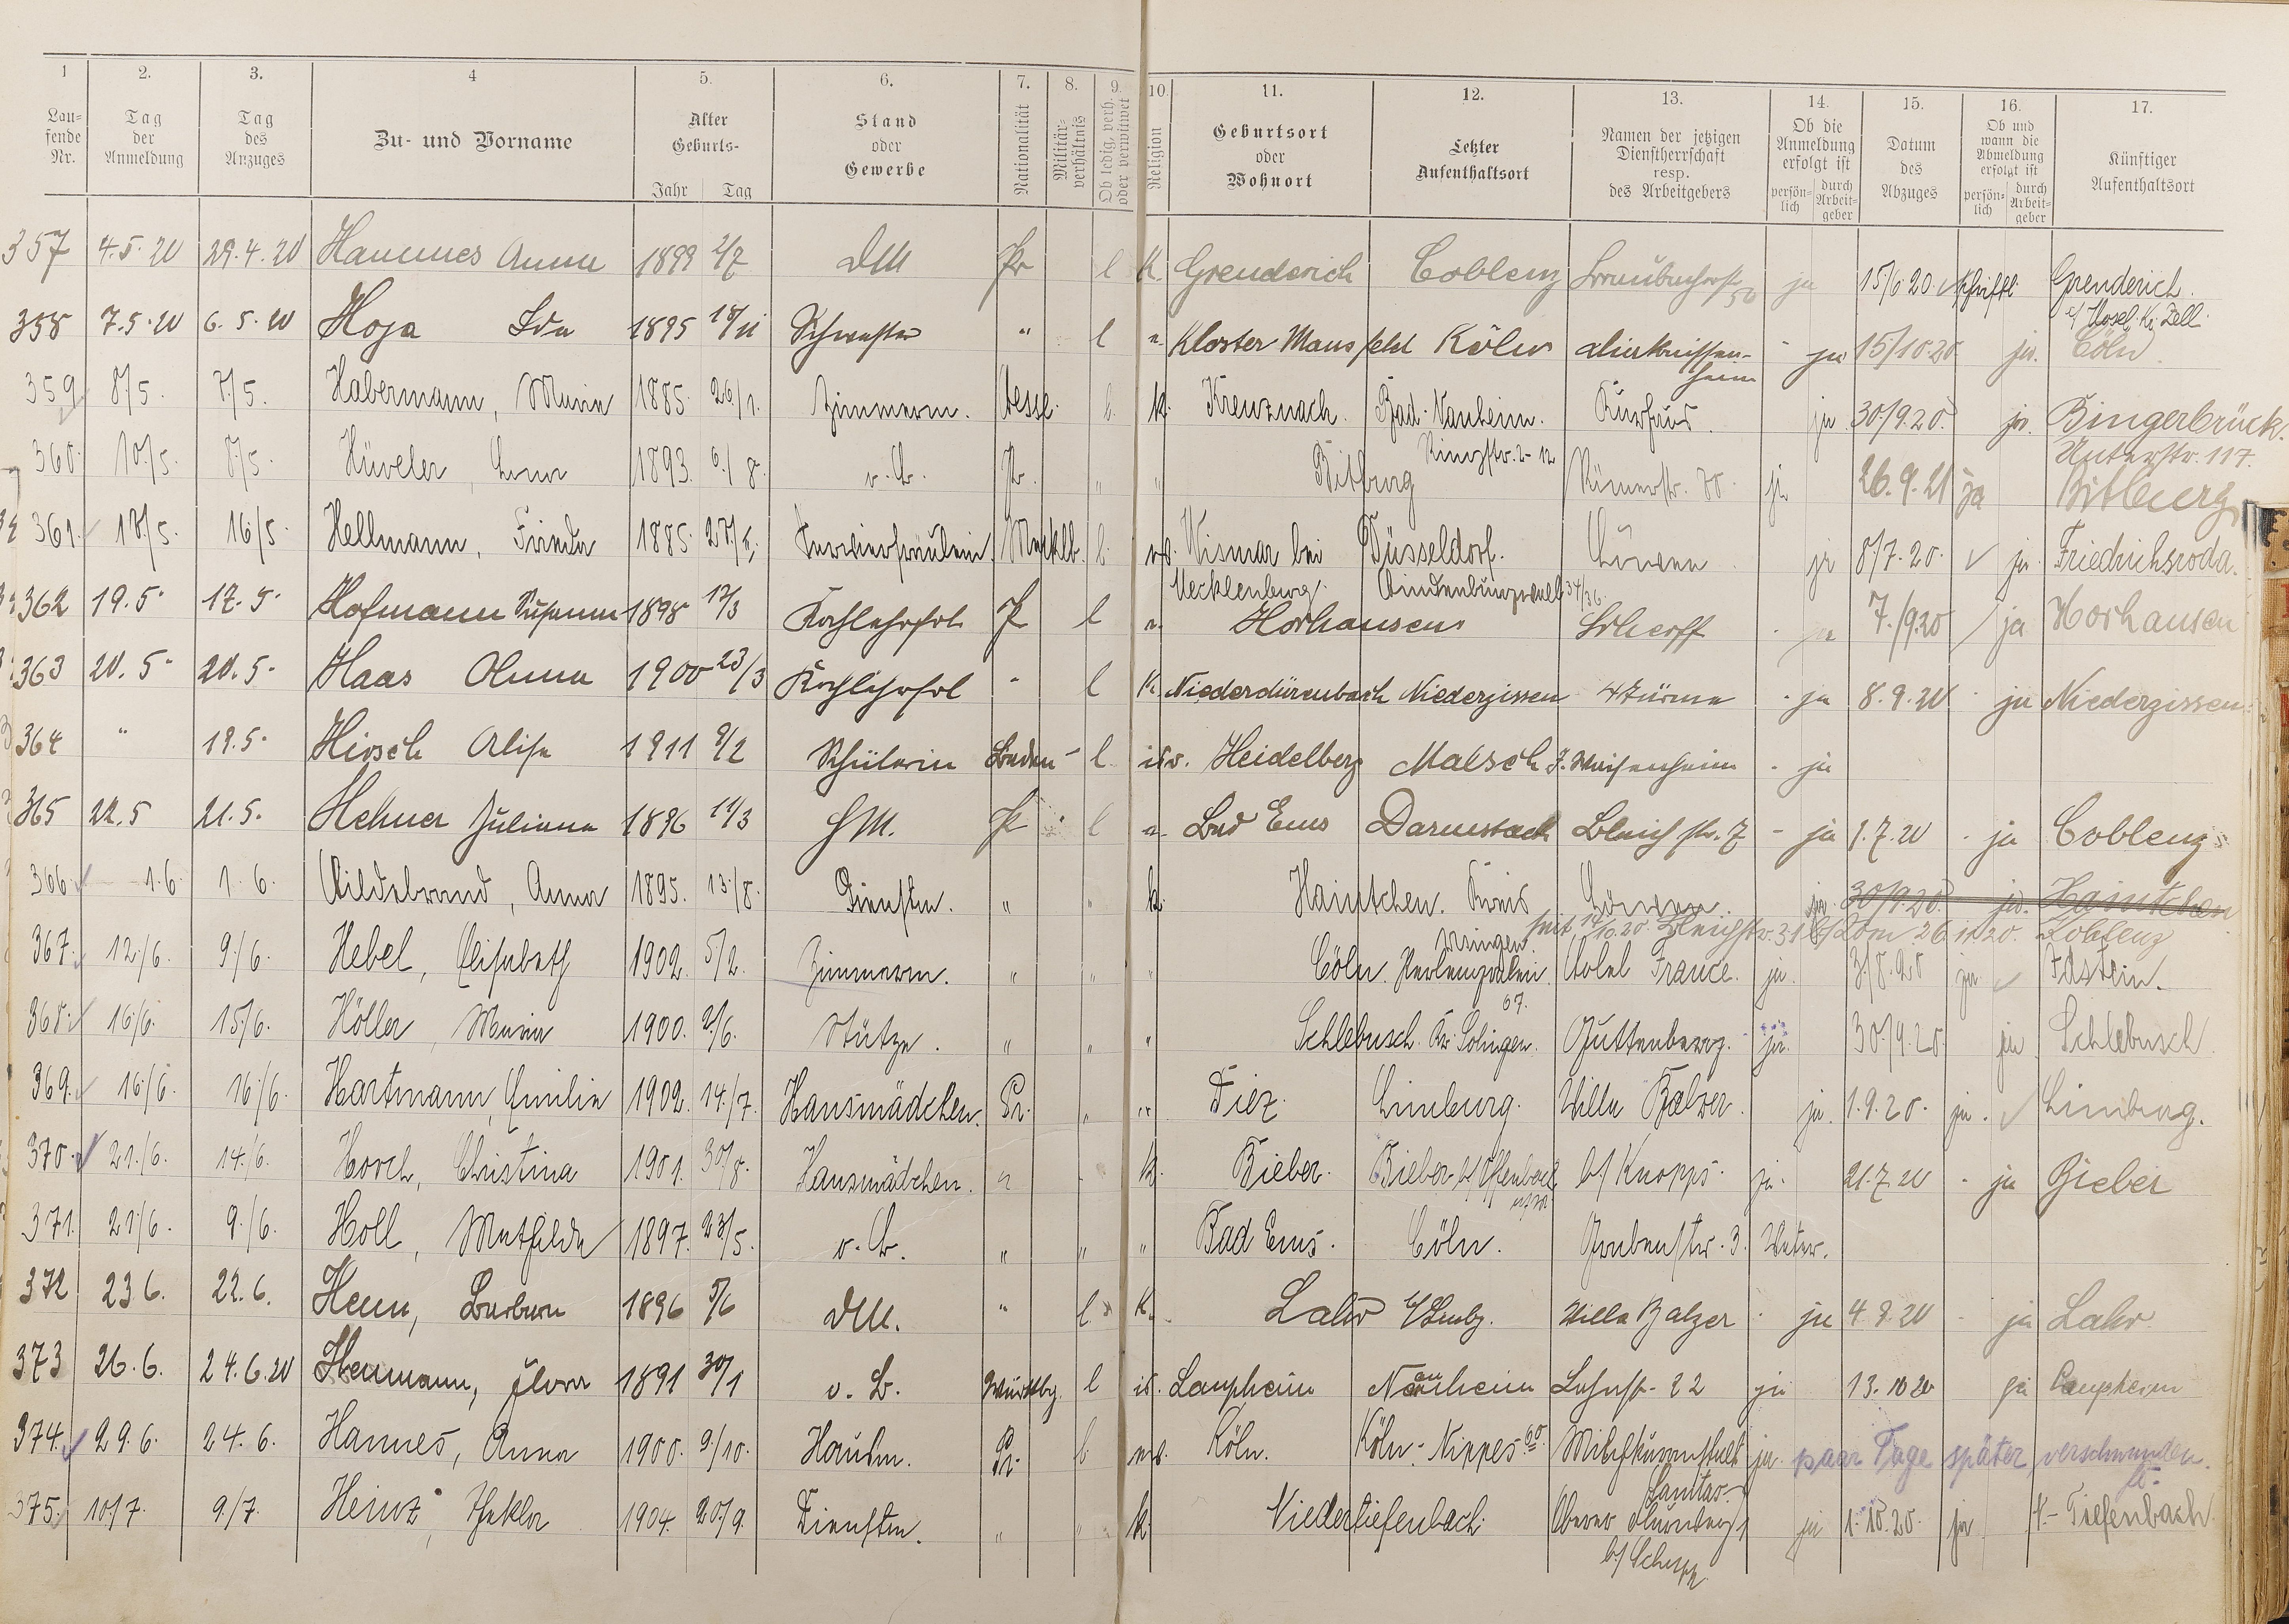 1 2. 3. 4 5. 6. 7. 8. 9. 10. 11. 12. 13. 14. 15. 16. 17.
Lau-
fende
Nr.
Tag
der
Anmeldung
Tag
des
Anzuges
Zu- und Vorname
Alter
Geburts-
Jahr Tag
Stand
oder
Gewerbe
Nationalität
Militär-
verhältnis
Ob ledig, verh.
oder verwitwet
Religion
Geburtsort
oder
Wohnort
Letzter
Aufenthaltsort
Namen der jetzigen
Dienstherrschaft
resp.
des Arbeitgebers
Ob die
Anmeldung
erfolgt ist
persön-
lich
durch
Arbeit-
geber
Datum
des
Abzuges
Ob und
wann die
Abmeldung
erfolgt ist
persön-
lich
durch
Arbeit-
geber
Künftiger
Aufenthaltsort
357 4.5.20 29.4.20 Hannes Anna 1899 2/7 DM Pr l K. Grenderich Coblenz 50 ja 15/6.20. schriftl. Grenderich
a/ Mosel. Kr. Zell.
358 7.5.20 6.5.20 Hoja Ida 1895 18/11 Schwester " l Kloster Mansfeld Köln Diakonissen- - ja 15/10.20 ja. Cöln.
heim
359 8/5. 7/5. Habermann, Maria 1885. 26/1. Zimmerm. Hesse. l. k. Kreuznach. Bad-Nauheim. Kurhaus. ja 30/9.20. ja. Bingerbrück.
Ringstr. 2-12 117.
360. 10./5. 8/5. Hüveler, 1893. 6./8. o.B. Pr. " " Bitburg Römerstr. 70. ja 26.9.21 ja Bitburg
361. 18/5. 16/5. Hellmann, Frieda 1885. 27./5. Servierfräulein. Mecklb. l. Wismar bei Düsseldorf. Löwen ja 8/7.20. ja. Friedrichsroda.
Mecklenburg. Hindenburgwall 34/36
362 19.5. 17.5. Hofmann Susanna 1898 17/3 Kochlehrfrl. P l Horhausen Scherff - ja 7./9.20 ja Horhausen
363 20.5. 20.5. Haas Anna 1900 23/3 Kochlehrfrl " l K. Niederdürenbach Niederzissen 4 Türme - ja 8.9.20 - ja Niederzissen
364 " 19.5. Hirsch Alise 1911 9/2 Schülerin Baden - l. isr. Heidelberg Malsch J. Waisenheim - ja
365 22.5 21.5. Hehner Juliana 1896 11/3 HM. P l Bad Ems Darmstadt Bleichstr. 7 - ja 1.7.20 - ja Coblenz
366. 1.6. 1.6. Hildebrand, Anna 1895. 13./8. Dienstm. " " k. Haintchen. Kreis Löwen ja 30/9.20. ja. Haintchen
Usingen. seit 10.20. Bleichstr. 31 b/ 26.11.20. Coblenz
367. 12./6. 9./6. Hebel, Elisabeth 1902. 5/2. Zimmerm. " " " Cöln. Hotel France. ja. 3/8.20 ja Idstein.
67.
368. 16/6. 15/6. Höller, Maria 1900. 2/6. Stütze. " " " Schlebusch. Kr. Solingen. Guttenberg. - ja. 30/9.20 ja Schlebusch.
369. 16/6. 16/6. Hartmann, Emilie 1902. 14./7. Hausmädchen. Pr. " " Diez. Limburg. Villa Balzer. ja. 1.9.20. ja. Limburg.
370. 21./6. 14./6. Horch, Christina 1901. 30/8. Hausmädchen. " k. Bieber. Bieber b/Offenbach b/ Knopps. ja. 21.7.20 - ja Bieber
371. 21/6. 9./6. Holl, Mathilde 1897. 23/5. o.B. " " " Bad Ems. Cöln. Grabenstr. 3. Vater.
372 23.6. 22.6. Henn, Barbara 1896 5/6 DM. " l K. Lahr b/Limbg. Villa Balzer - ja 4.9.20 - ja Lahr
373 26.6. 24.6.20 Heumann, Flora 1891 30/1 o.B. Württbg. l is. Laupheim Nauheim Luhnst. 22 ja 13.10.20 ja Laupheim
374. 29.6. 24.6. Hannes, Anna 1900. 9./10. Hausm. Pr. l. Köln. Köln-Nippes. 60. Milchkuranstalt ja. paar Tage später verschwunden.
375. 10/7. 9./7. Heinz, Thekla 1904. 20/9. Dienstm. " " k. Niedertiefenbach. Sanitas. ja 1.10.20. ja N.-Tiefenbach.
b/ Schupp